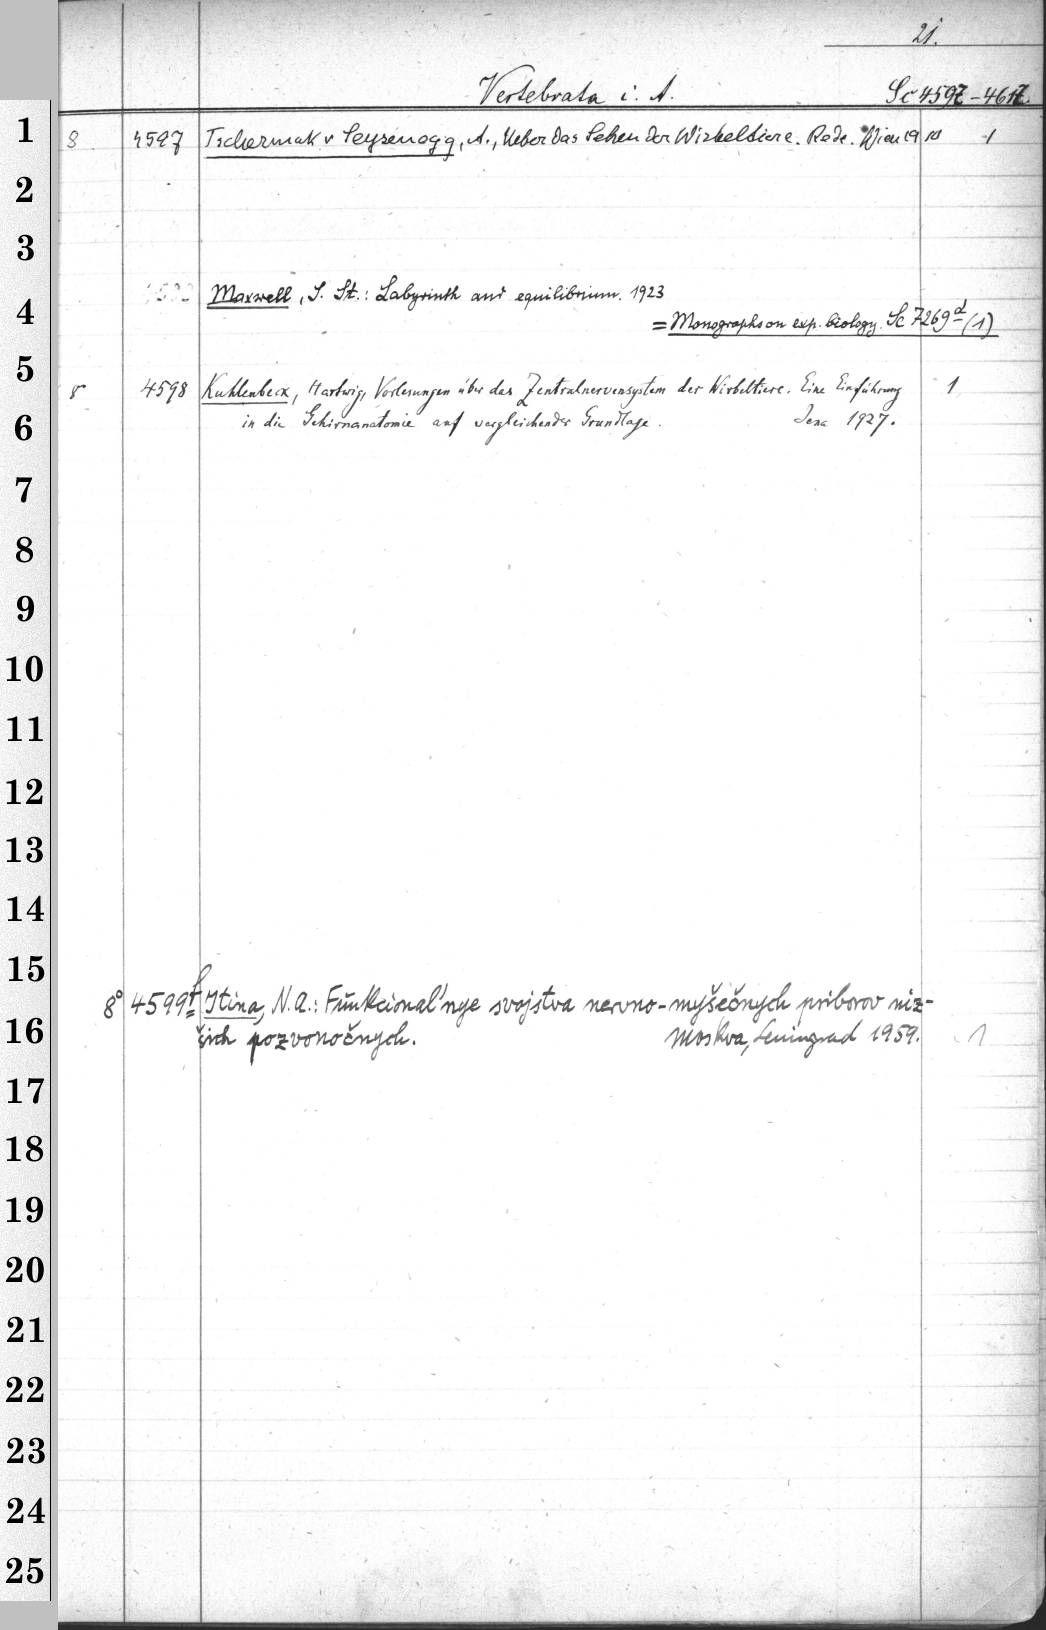 21.
Vertebrata i. A. Sc 4597 - 4617.
1 8 4597 Tschermak v Seysenogg, A., Ueber das Sehen der Wirbeltiere. Rede. Wien 1910 1
2
3
Maxwell, S. St.: Labyrinth and equilibrium. 1923
4 = Monographs on exp. biology. Sc 7269d (1)
5 8 4598 Kuhlenbeck, Hartwig, Vorlesungen über das Zentralnervensystem der Wirbeltiere. Eine Einführung 1
6 in die Gehirnanatomie auf vergleichender Grundlage. Jena 1927.
7
8
9
10
11
12
13
14
15
8° 4599f Itina, N.A.: Funkcional'nye svojstva nervno-myšečnych priborov niz-
16 šich pozvonočnych. Moskva, Leningrad 1959. 1
17
18
19
20
21
22
23
24
25